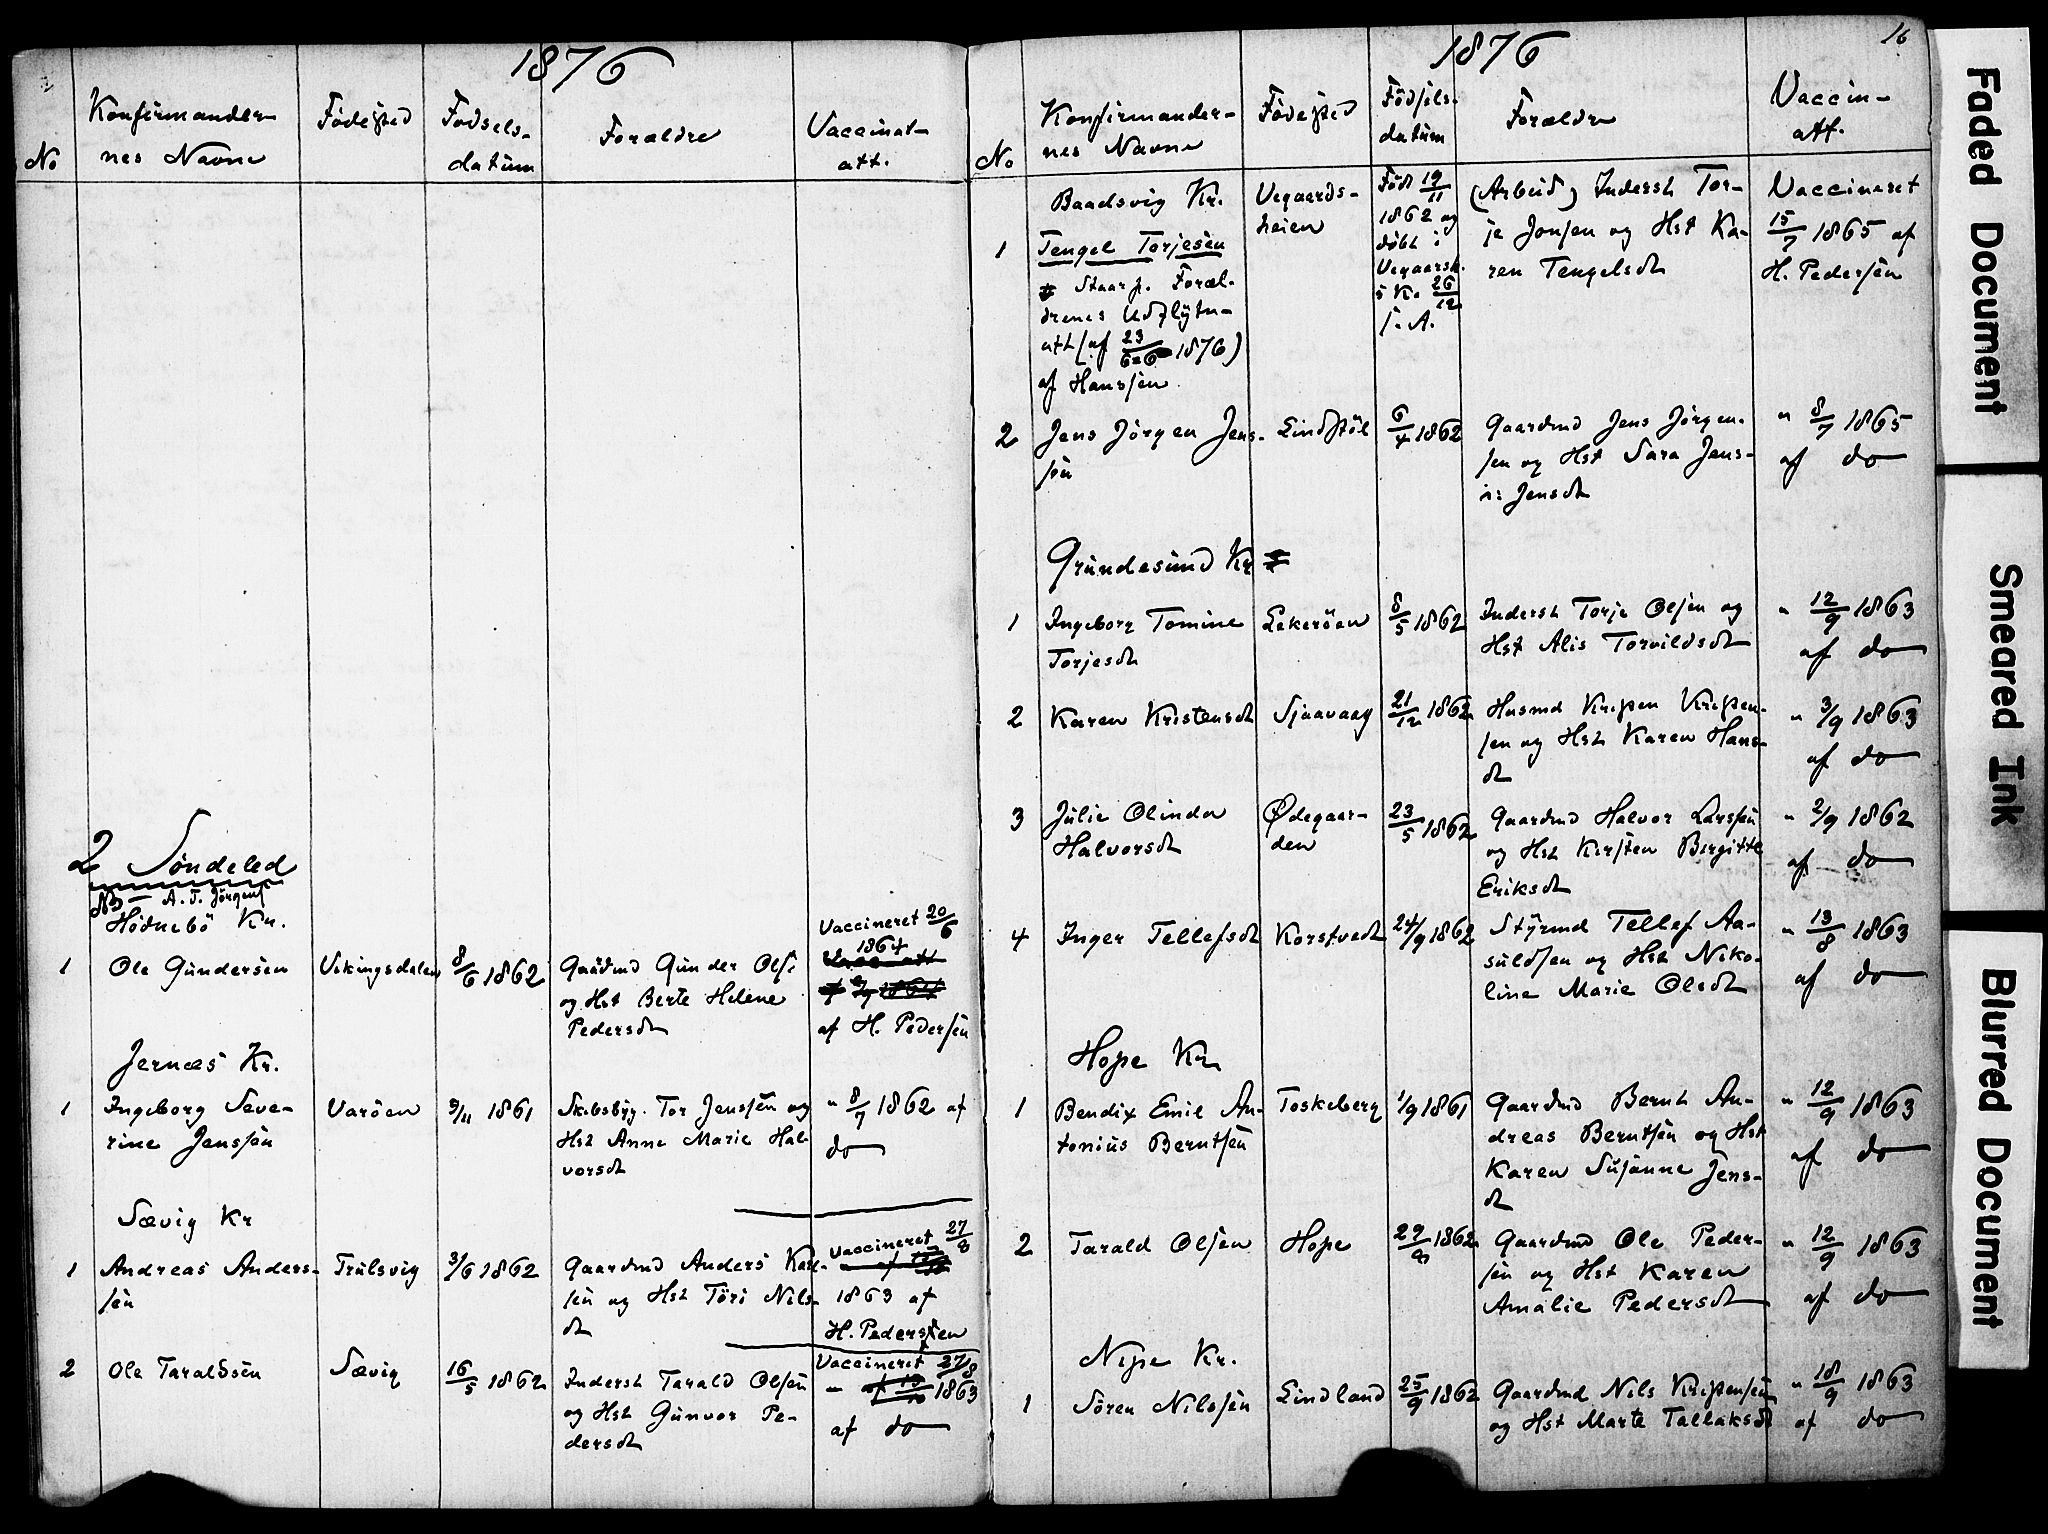 1876
No
Konfirmander-
nes Navne
Födested
Födsels-
datum
Forældre
Vaccinat-
att.
2 Söndeled
NB - A. T. Jörgens
Hödnebö Kr.
1 Ole Gundersen Vikingsdalen 8/6 1862 Gaardmd Gunder Ols.
og Hst Berte Helene
Pedersdt
Vaccineret 20/6
1864
af H. Pedersen
Jernæs Kr.
1 Ingeborg Seve-
rine Jenssen
Varöen 9/11 1861 Skibsbyg. Tor Jenssen og
Hst Anne Marie Hal-
vorsdt
" 8/7 1862 af
do
Sævig Kr
1 Andreas Anders-
sen
Trulsvig 3/6 1862 Gaardmd Anders Karl-
sen og Hst Töri Nils-
dt
Vaccineret 27/8
1863 af
H. Pedersen
2 Ole Taraldsen Sævig 16/5 1862 Inderst Tarald Olsen
og Hst Gunvor Pe-
dersdt
Vaccineret 27/8
" 1863
af do
16
1876
No
Konfirmander-
nes Navne
Födested
Födsels-
datum
Forældre
Vaccin-
att.
Baadsvig Kr.
1 Tengel Torjesen
Staar p. Foræl-
drenes Udflytn-
att (af 23/6 1876)
af Hanssen
Vegaards-
heien
Född 19/11
1862 og
döbt i
Vegaarsh.
s K. 26/12
s. A.
(Arbeid) Inderst Tor-
je Jonsen og Hst Ka-
ren Tengelsdt
Vaccineret
15/7 1865 af
H. Pedersen
2 Jens Jörgen Jens-
sen
Lindstöl 6/4 1862 Gaardmd Jens Jörgen-
sen og Hst Sara Jens-
Jensdt
" 8/7 1865
af do
Grundesund Kr
1 Ingeborg Tomine
Torjesdt
Lekeröen 8/5 1862 Inderst Torje Olsen og
Hst Alis Torvildsdt
" 12/9 1863
af do
2 Karen Kristensdt Sjaavaag 21/12 1862 Husmd Kristen Kristen-
sen og Hst Karen Hans-
dt
" 3/9 1863
af do
3 Julie Olinda
Halvorsdt
Ødegaar-
den
23/5 1862 Gaardmd Halvor Larssen
og Hst Kirsten Birgitte
Eriksdt
" 2/9 1862
af do
4 Inger Tellefsdt Korstvedt 24/9 1862 Styrmd Tellef Aa-
suldsen og Hst Niko-
line Marie Olsdt
" 13/8 1863
af do
Hope Kr
1 Bendix Emil An-
tonius Berntsen
Toskeberg 1/9 1861 Gaardmd Bernt An-
dreas Berntsen og Hst
Karen Susanne Jens-
dt
" 12/9 1863
af do
2 Tarald Olsen Hope 29/8 1862 Gaardmd Ole Peder-
sen og Hst Karen
Amalie Pedersdt
" 12/9 1863
af do
Nipe Kr.
1 Sören Nilssen Lindland 25/9 1862 Gaardmd Nils Kristensen
og Hst Marte Tallaksdt
" 18/9 1863
af do
Faded Document
Smeared Ink
Blurred Document